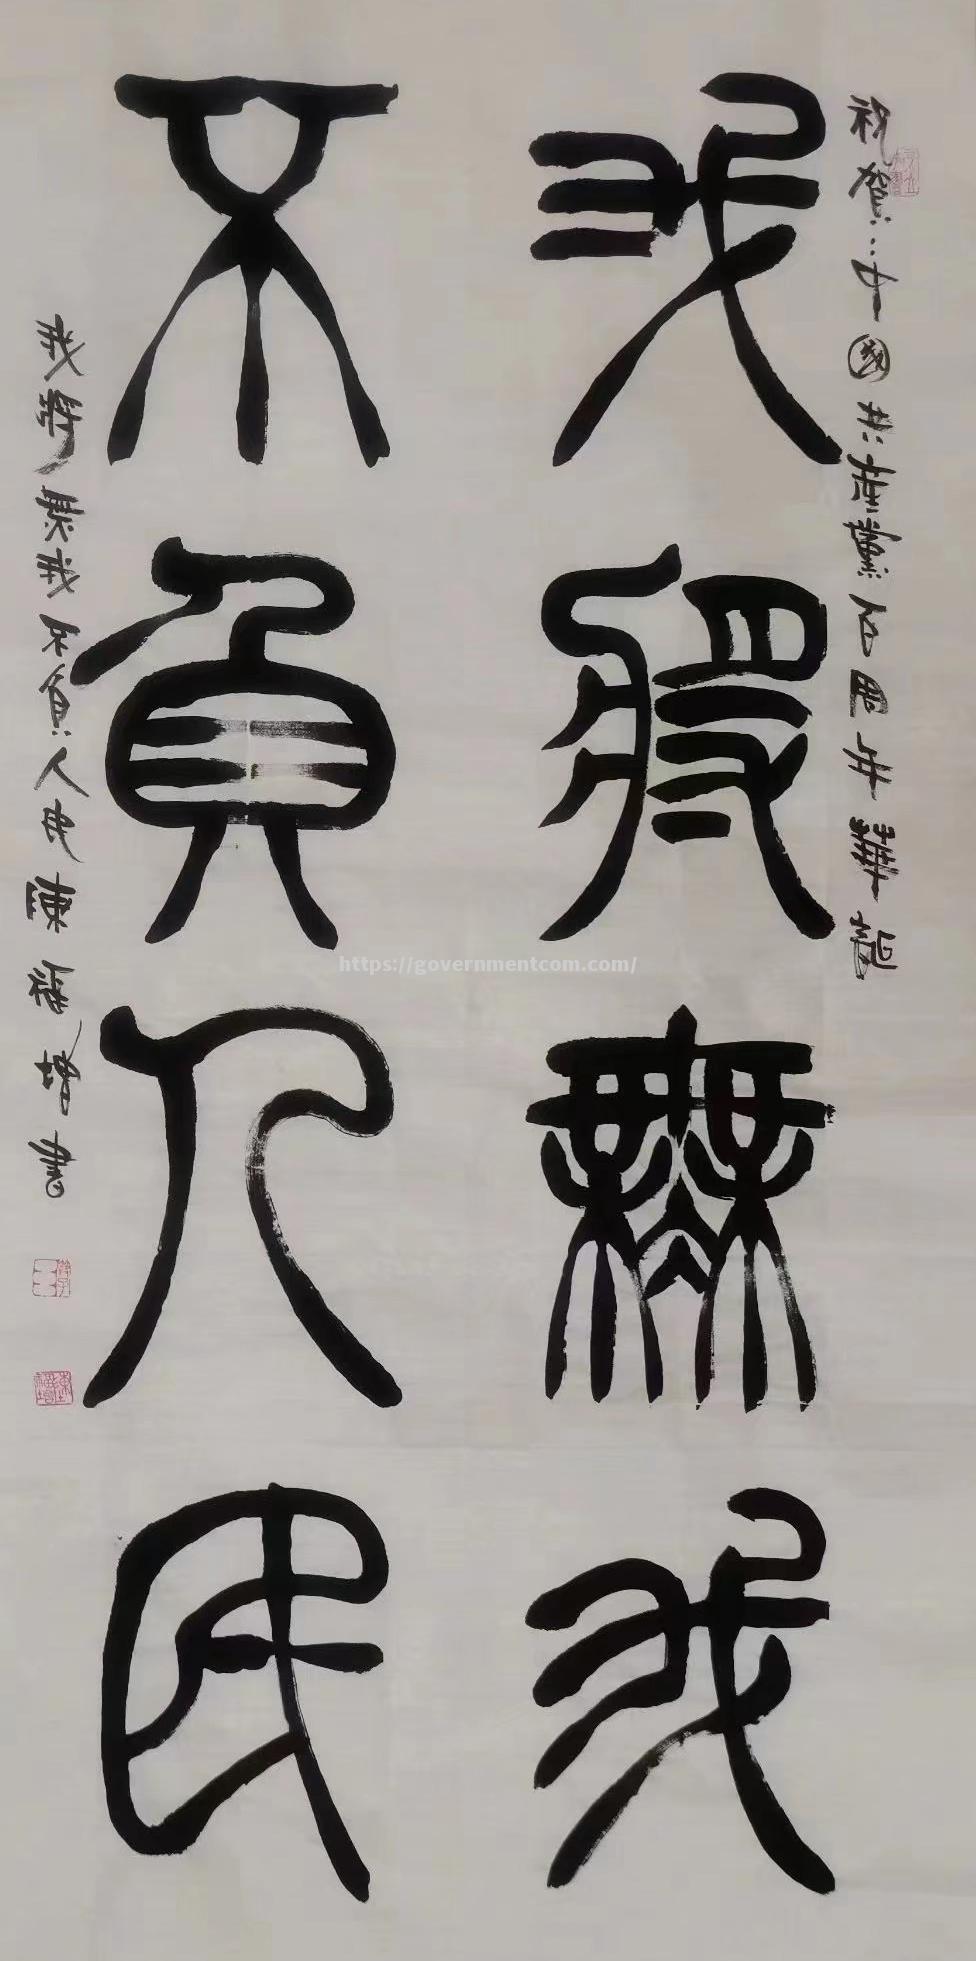 祝賀中國共產黨百周年華誕
我將無我
不負人民
我將無我不負人民陳福增書
https://governmentcom.com/